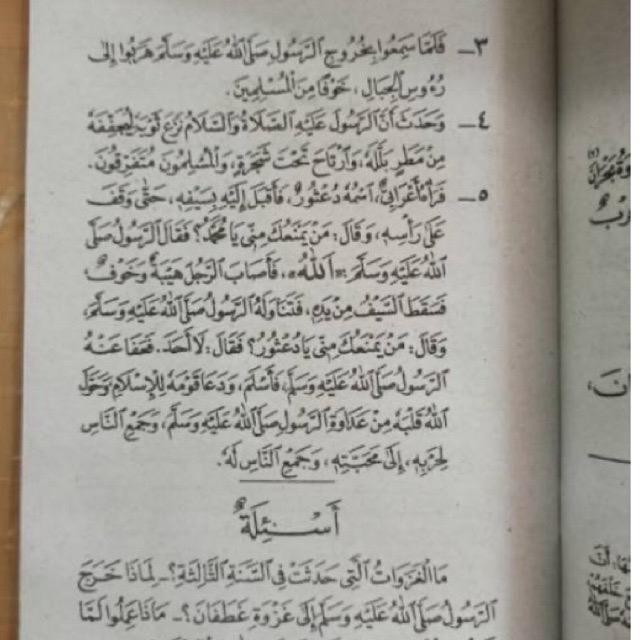 ٣ــ فَلَمَّا سَمِعُوا بِخُرُوجِ الرَّسُولِ صَلَّى اللهُ عَلَيْهِ وَسَلَّمَ هَرَبُوا إِلَى
رُءُوسِ الْجِبَالِ، خَوْفًا مِنَ الْمُسْلِمِينَ.
٤ــ وَحَدَثَ أَنَّ الرَّسُولَ عَلَيْهِ الصَّلَاةُ وَالسَّلَامُ نَزَعَ ثَوْبَهُ لِيُجَفِّفَهُ
مِنْ مَطَرٍ بَلَّلَهُ، وَارْتَاحَ تَحْتَ شَجَرَةٍ، وَالْمُسْلِمُونَ مُتَفَرِّقُونَ.
٥ــ فَرَآهُ أَعْرَابِيٌّ، اسْمُهُ دُعْثُورٌ، فَأَقْبَلَ إِلَيْهِ بِسَيْفِهِ، حَتَّى وَقَفَ
عَلَى رَأْسِهِ، وَقَالَ: مَنْ يَمْنَعُكَ مِنِّي يَا مُحَمَّدُ؟ فَقَالَ الرَّسُولُ صَلَّى
اللهُ عَلَيْهِ وَسَلَّمَ: «اَللهُ»، فَأَصَابَ الرَّجُلَ هَيْبَةٌ وَخَوْفٌ،
فَسَقَطَ السَّيْفُ مِنْ يَدِهِ، فَتَنَاوَلَهُ الرَّسُولُ صَلَّى اللهُ عَلَيْهِ وَسَلَّمَ،
وَقَالَ: مَنْ يَمْنَعُكَ مِنِّي يَا دُعْثُورُ؟ فَقَالَ: لَا أَحَدَ. فَعَفَا عَنْهُ
الرَّسُولُ صَلَّى اللهُ عَلَيْهِ وَسَلَّمَ، فَأَسْلَمَ، وَدَعَا قَوْمَهُ لِلْإِسْلَامِ وَحَوَّلَ
اللهُ قَلْبَهُ مِنْ عَدَاوَةِ الرَّسُولِ صَلَّى اللهُ عَلَيْهِ وَسَلَّمَ، وَجَمْعِ النَّاسِ
لِحَرْبِهِ، إِلَى مَحَبَّتِهِ، وَجَمْعِ النَّاسِ لَهُ.
أَسْئِلَةٌ
مَا الْغَزَوَاتُ الَّتِي حَدَثَتْ فِي السَّنَةِ الثَّالِثَةِ؟ــ لِمَاذَا خَرَجَ
الرَّسُولُ صَلَّى اللهُ عَلَيْهِ وَسَلَّمَ إِلَى غَزْوَةِ غَطَفَانَ؟ــ مَاذَا عَمِلُوا لَمَّا